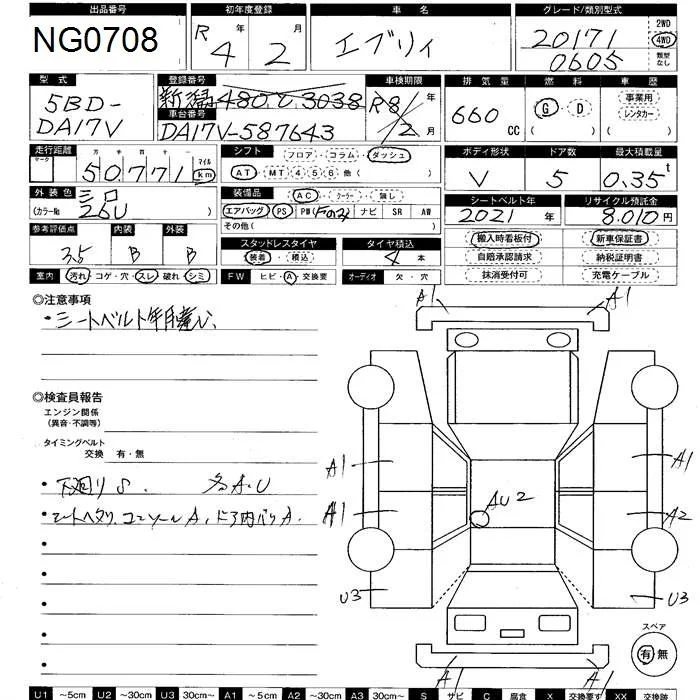 出品番号 初年度登録 車名 グレード/類別型式
NG0708 R 4年 2月 エブリィ 20171 0605 2WD 4WD 類型なし
型式 登録番号 車検期限 排気量 燃料 車歴
5BD-DA17V 新潟480 と 3038 R8年 2月 660cc G・D ( ) 事業用 レンタカー ( )
車台番号
DA17V-587643
走行距離 シフト フロア・コラム・ダッシュ ボディ形状 ドア数 最大積載量
マーク 十万千百十 50771 マイル km AT・MT 4 5 6 他( ) V 5 0.35t
外装色 装備品 AC・クーラー・無し シートベルト年 リサイクル預託金
(カラー№ 26U ) エアバッグ PS PW(Fのみ) ナビ SR AW 2021年 8.010円
その他( )
参考評価点 内装 外装 スタッドレスタイヤ タイヤ積込 搬入時看板付 新車保証書
3.5 B B 装着・積込 4本 自賠承認請求 納税証明書
室内 汚れ・コゲ・穴・スレ・破れ・シミ FW ヒビ・A・交換要 オーディオ 欠・穴 抹消受付可 充電ケーブル
◎注意事項
・シートベルト年月
◎検査員報告
エンジン関係
(異音・不調等)
タイミングベルト
交換 有・無
・下廻りS. 各A.U
・シートヘタリ、コンソールA、ドア内バリA.
A1 A1
A1 A1
A1 A2
AU2
U3 U3
A1 A1
スペア
有 無
U1 ～5cm U2 ～30cm U3 30cm～ A1 ～5cm A2 ～30cm A3 30cm～ S サビ C 腐食 X 交換要す XX 交換跡